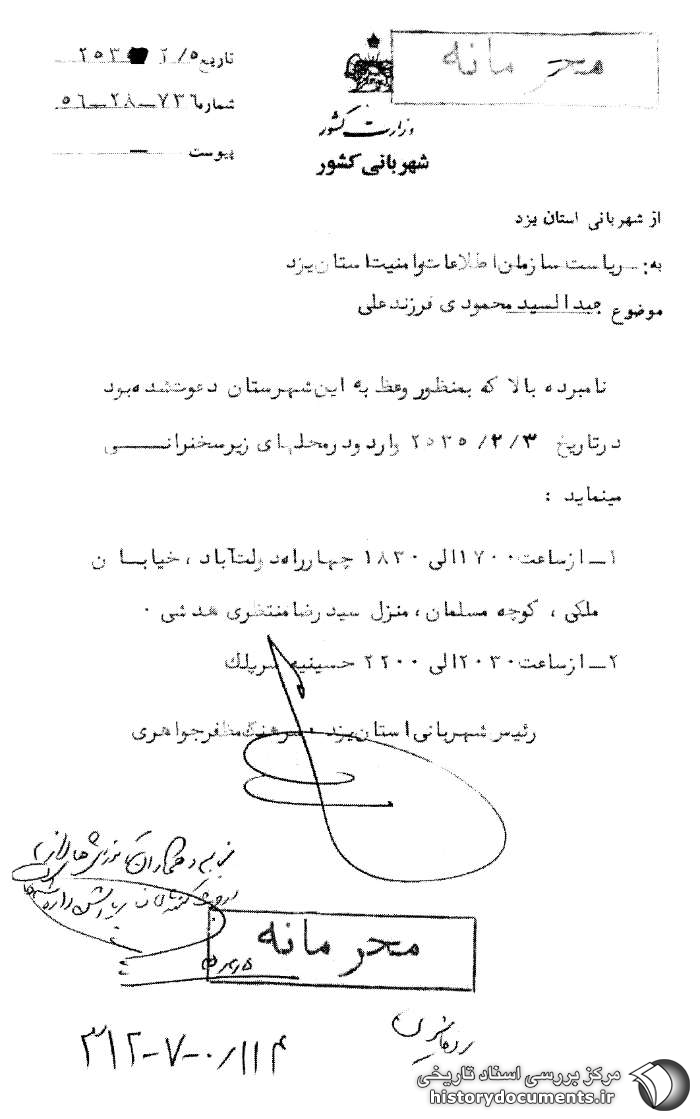 محرمانه
تاریخ ۲/۵ ۲۵۳
شماره ۷۳۶-۲۸-۵۶
پیوست —
وزارت کشور
شهربانی کشور
از شهربانی استان یزد
به: ریاست سازمان اطلاعات و امنیت استان یزد
موضوع عبدالسید محمودی فرزند علی
نامبرده بالا که بمنظور وعظ به این شهرستان دعوت شده بود
در تاریخ ۲۵۳۵/۲/۳ وارد و در محلهای زیر سخنرانی
مینماید :
۱- از ساعت ۱۷۰۰ الی ۱۸۳۰ چهارراه دولت‌آباد ، خیابان
ملکی ، کوچه مسلمان ، منزل سید رضا منتظری هدشی ۰
۲- از ساعت ۲۰۳۰ الی ۲۲۰۰ حسینیه سرپلك
رئیس شهربانی استان یزد ۰ سرهنگ مظفر جواهری
محرمانه
۳۱۲-۷-۰/۱۱۴
مرکز بررسی اسناد تاریخی
historydocuments.ir